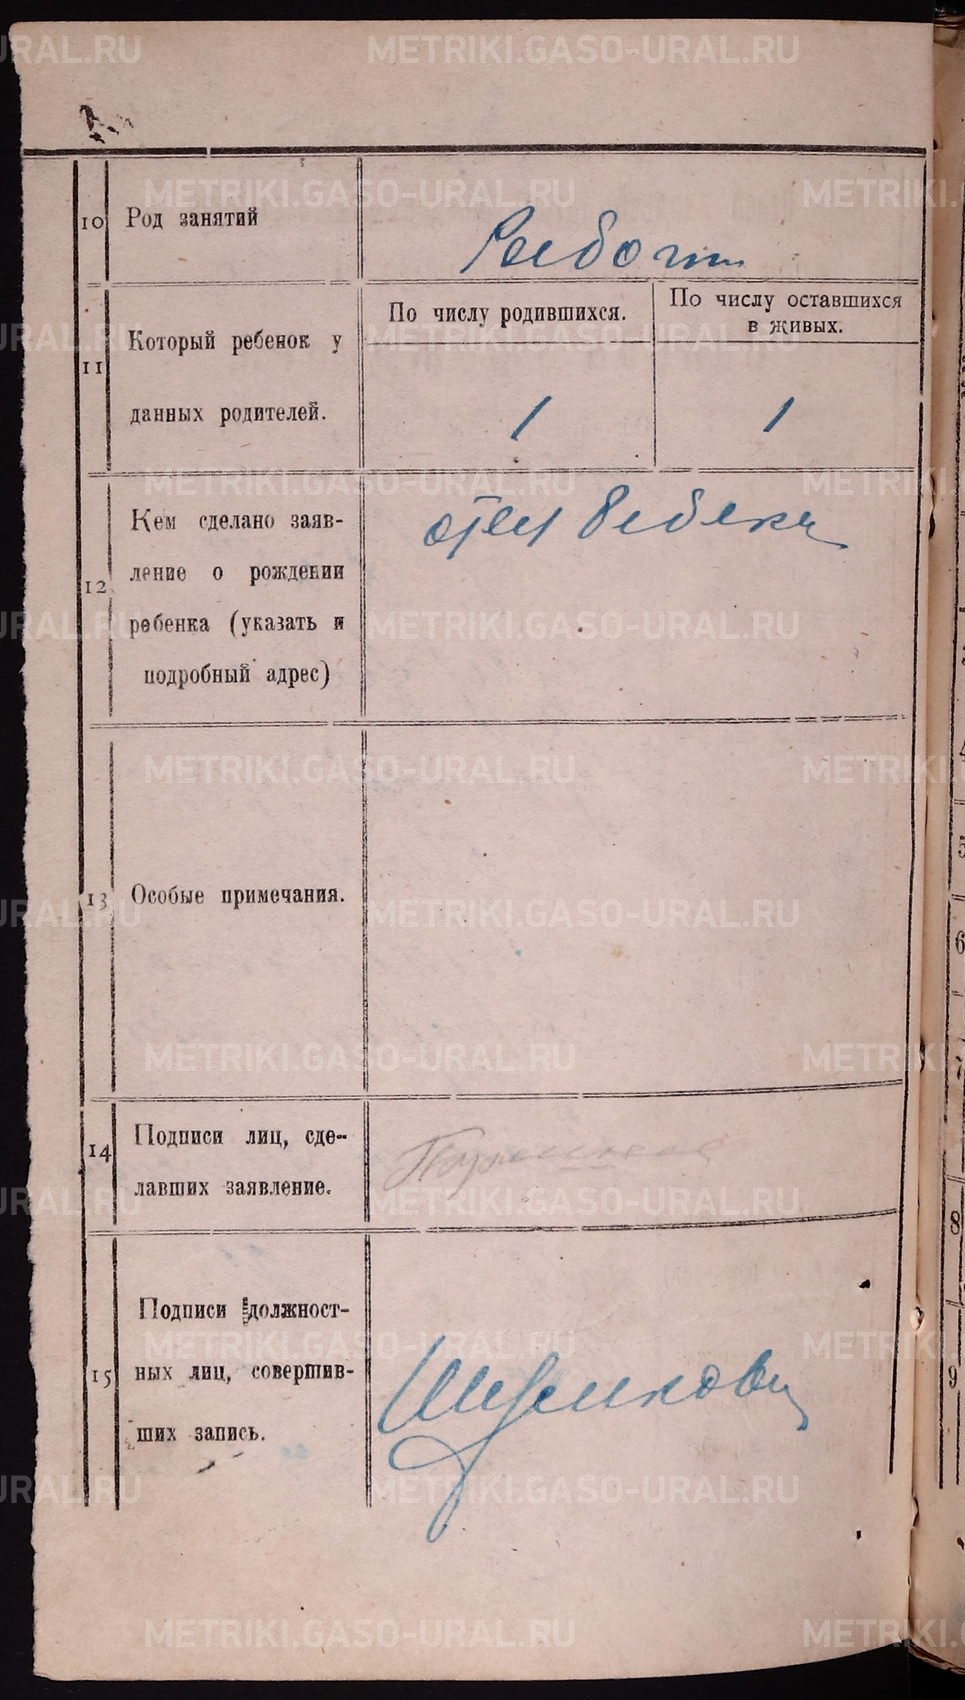 METRIKI.GASO-URAL.RU
10 Род занятий
Рабочий
11 Который ребенок у данных родителей.
По числу родившихся.
По числу оставшихся
в живых.
1
1
12
Кем сделано заяв-
ление о рождении
ребенка (указать и
подробный адрес)
отец ребенка
13 Особые примечания.
14
Подписи лиц, сде-
лавших заявление.
15
Подписи должност-
ных лиц, совершив-
ших запись.
4
5
6
7
8
9